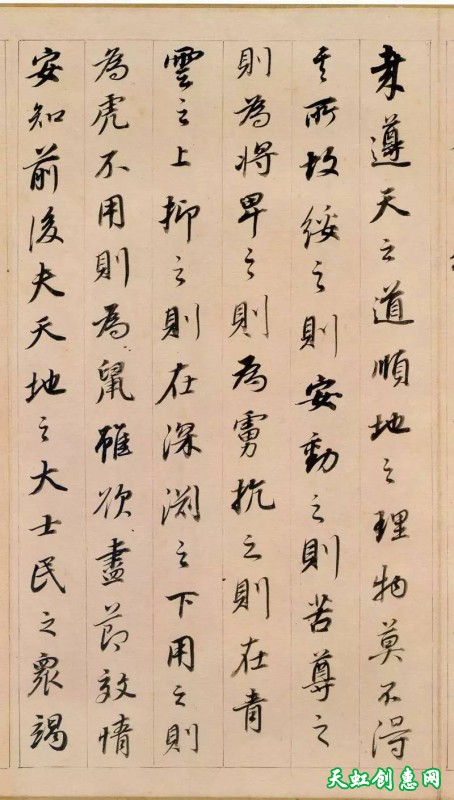 聿遵天之道順地之理物莫不得
其所故綏之則安動之則苦尊之
則為将卑之則為虜抗之則在青
雲之上抑之則在深淵之下用之則
為虎不用則為鼠雖欲盡節效情
安知前後夫天地之大士民之衆竭
天虹创惠网